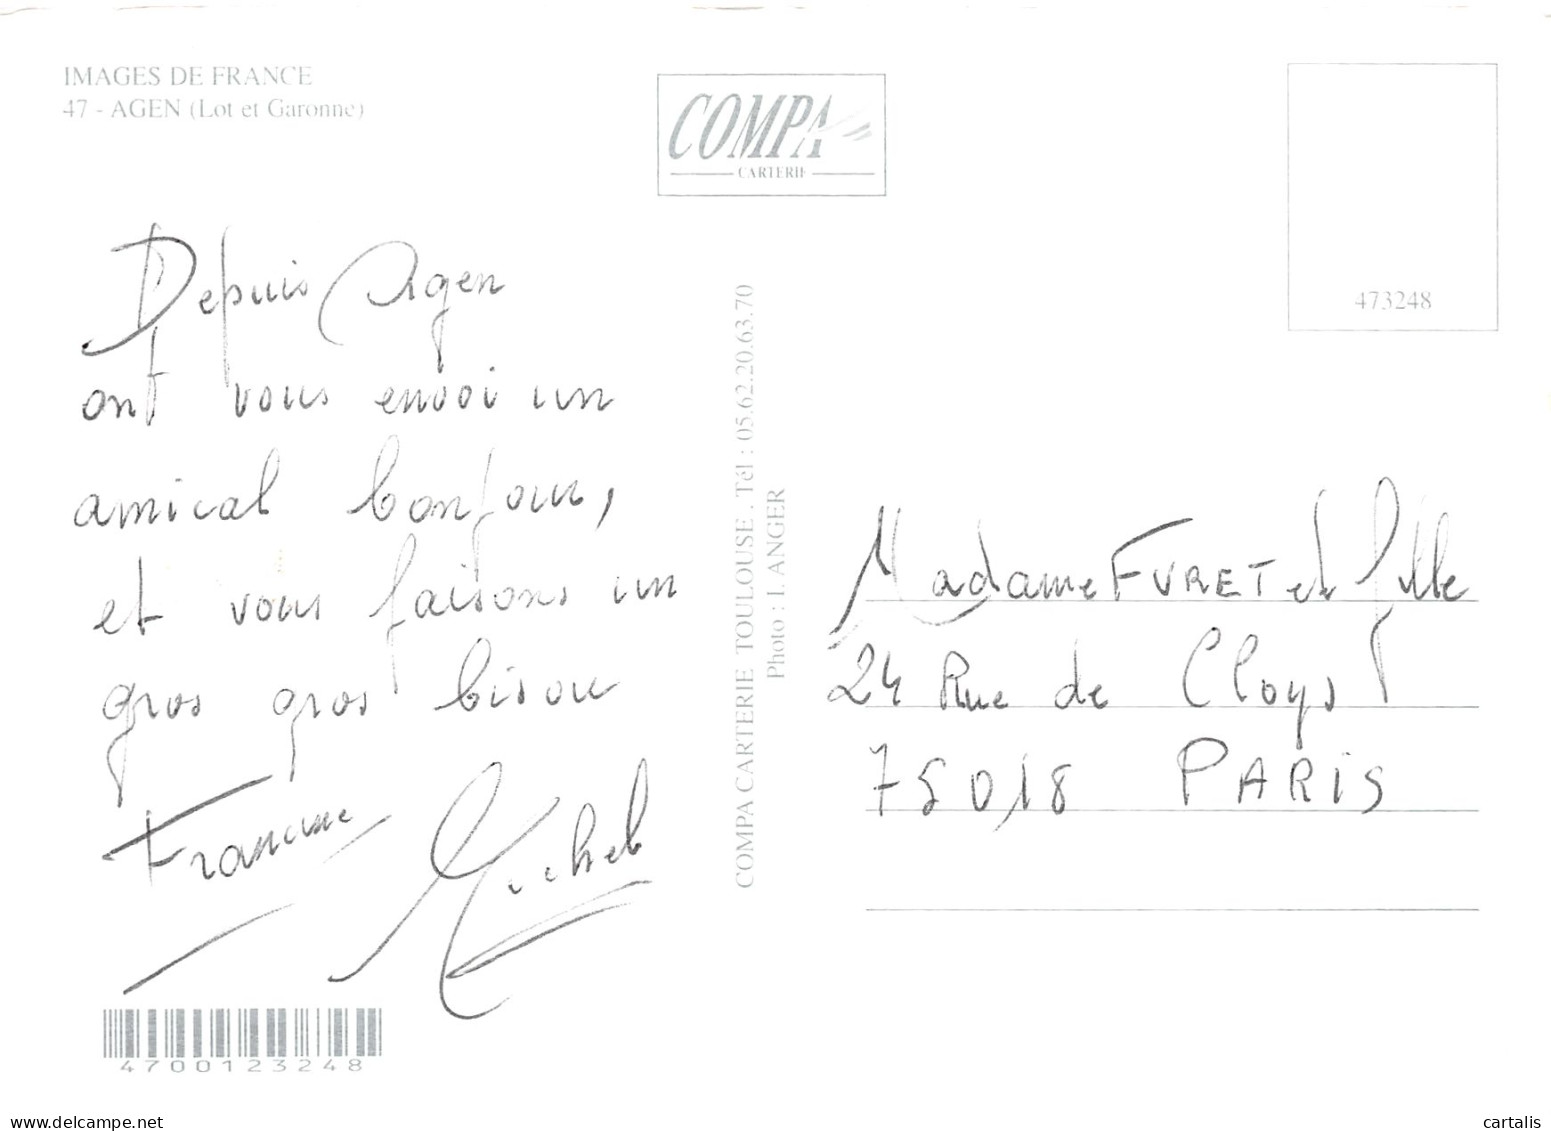 IMAGES DE FRANCE
47 - AGEN (Lot et Garonne)
COMPA
CARTERIE
473248
Depuis Agen
ont vous envoi un
amical bonjour,
et vous faisons un
gros gros bisou
Francine
Michel
4700123248
COMPA CARTERIE TOULOUSE . Tél : 05.62.20.63.70
Photo : LANGER
Madame FURET et fille
24 Rue de Cloys
75018 PARIS
cartalis
www.delcampe.net